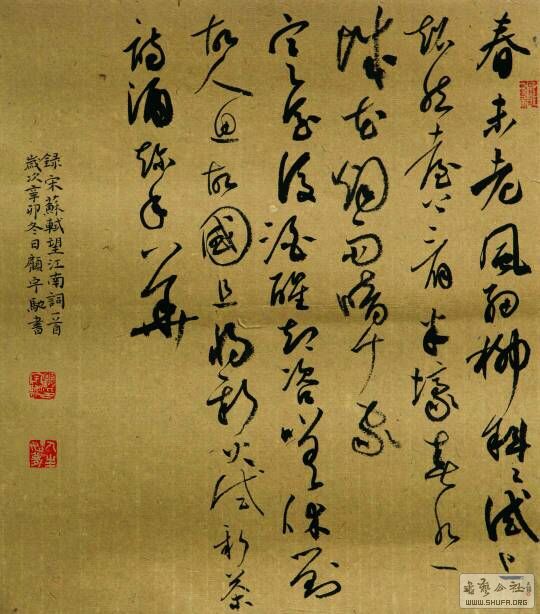 春未老風細柳斜〻試上
超然臺上看半壕春水一
城花烟雨暗千家
寒食後酒醒却咨嗟休對
故人思故國且將新火試新茶
詩酒趁年華
録宋蘇軾望江南詞一首
歲次辛卯冬日顧宇馳書
书艺公社
WWW.SHUFA.ORG